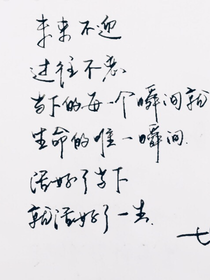 未来不迎
过往不恋
当下的每一个瞬间就
生命的唯一瞬间.
活好了当下
就活好了一生.
七